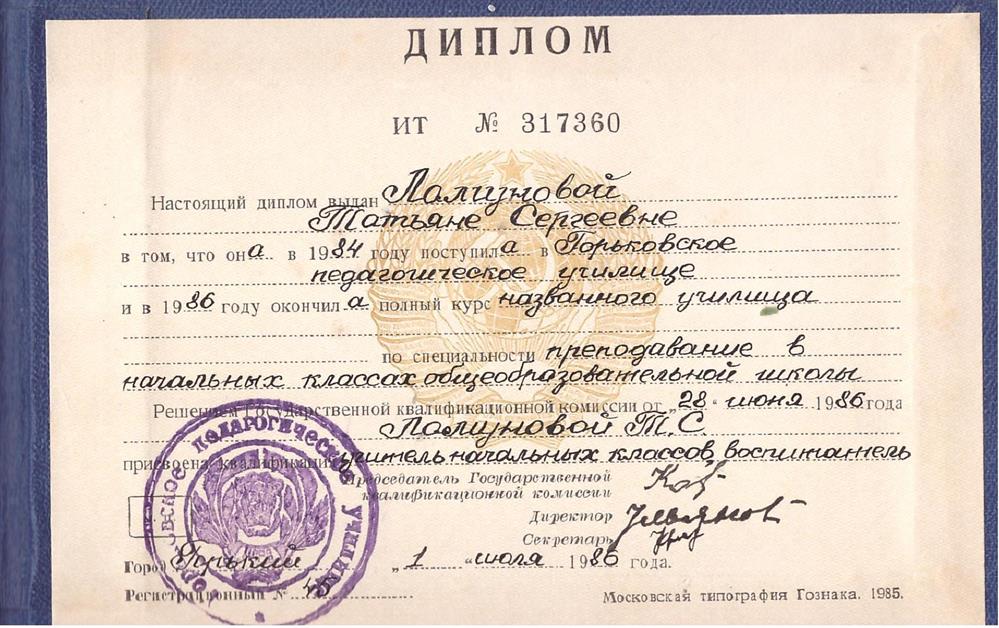 ДИПЛОМ
ИТ № 317360
Настоящий диплом выдан
Татьяне Сергеевне
в том, что она в 1984 году поступила в Горьковское
педагогическое училище
и в 1986 году окончила полный курс названного училища
по специальности преподавание в
начальных классах общеобразовательной школы
Решением Государственной квалификационной комиссии от „28“ июня 1986 года
Т.С
присвоена квалификация учитель начальных классов, воспитатель
Председатель Государственной
квалификационной комиссии
Директор Ульянов
Секретарь
Город Горький „1“ июля 1986 года.
Регистрационный № 45
Московская типография Гознака. 1985.
ПЕДАГОГИЧЕСКОЕ